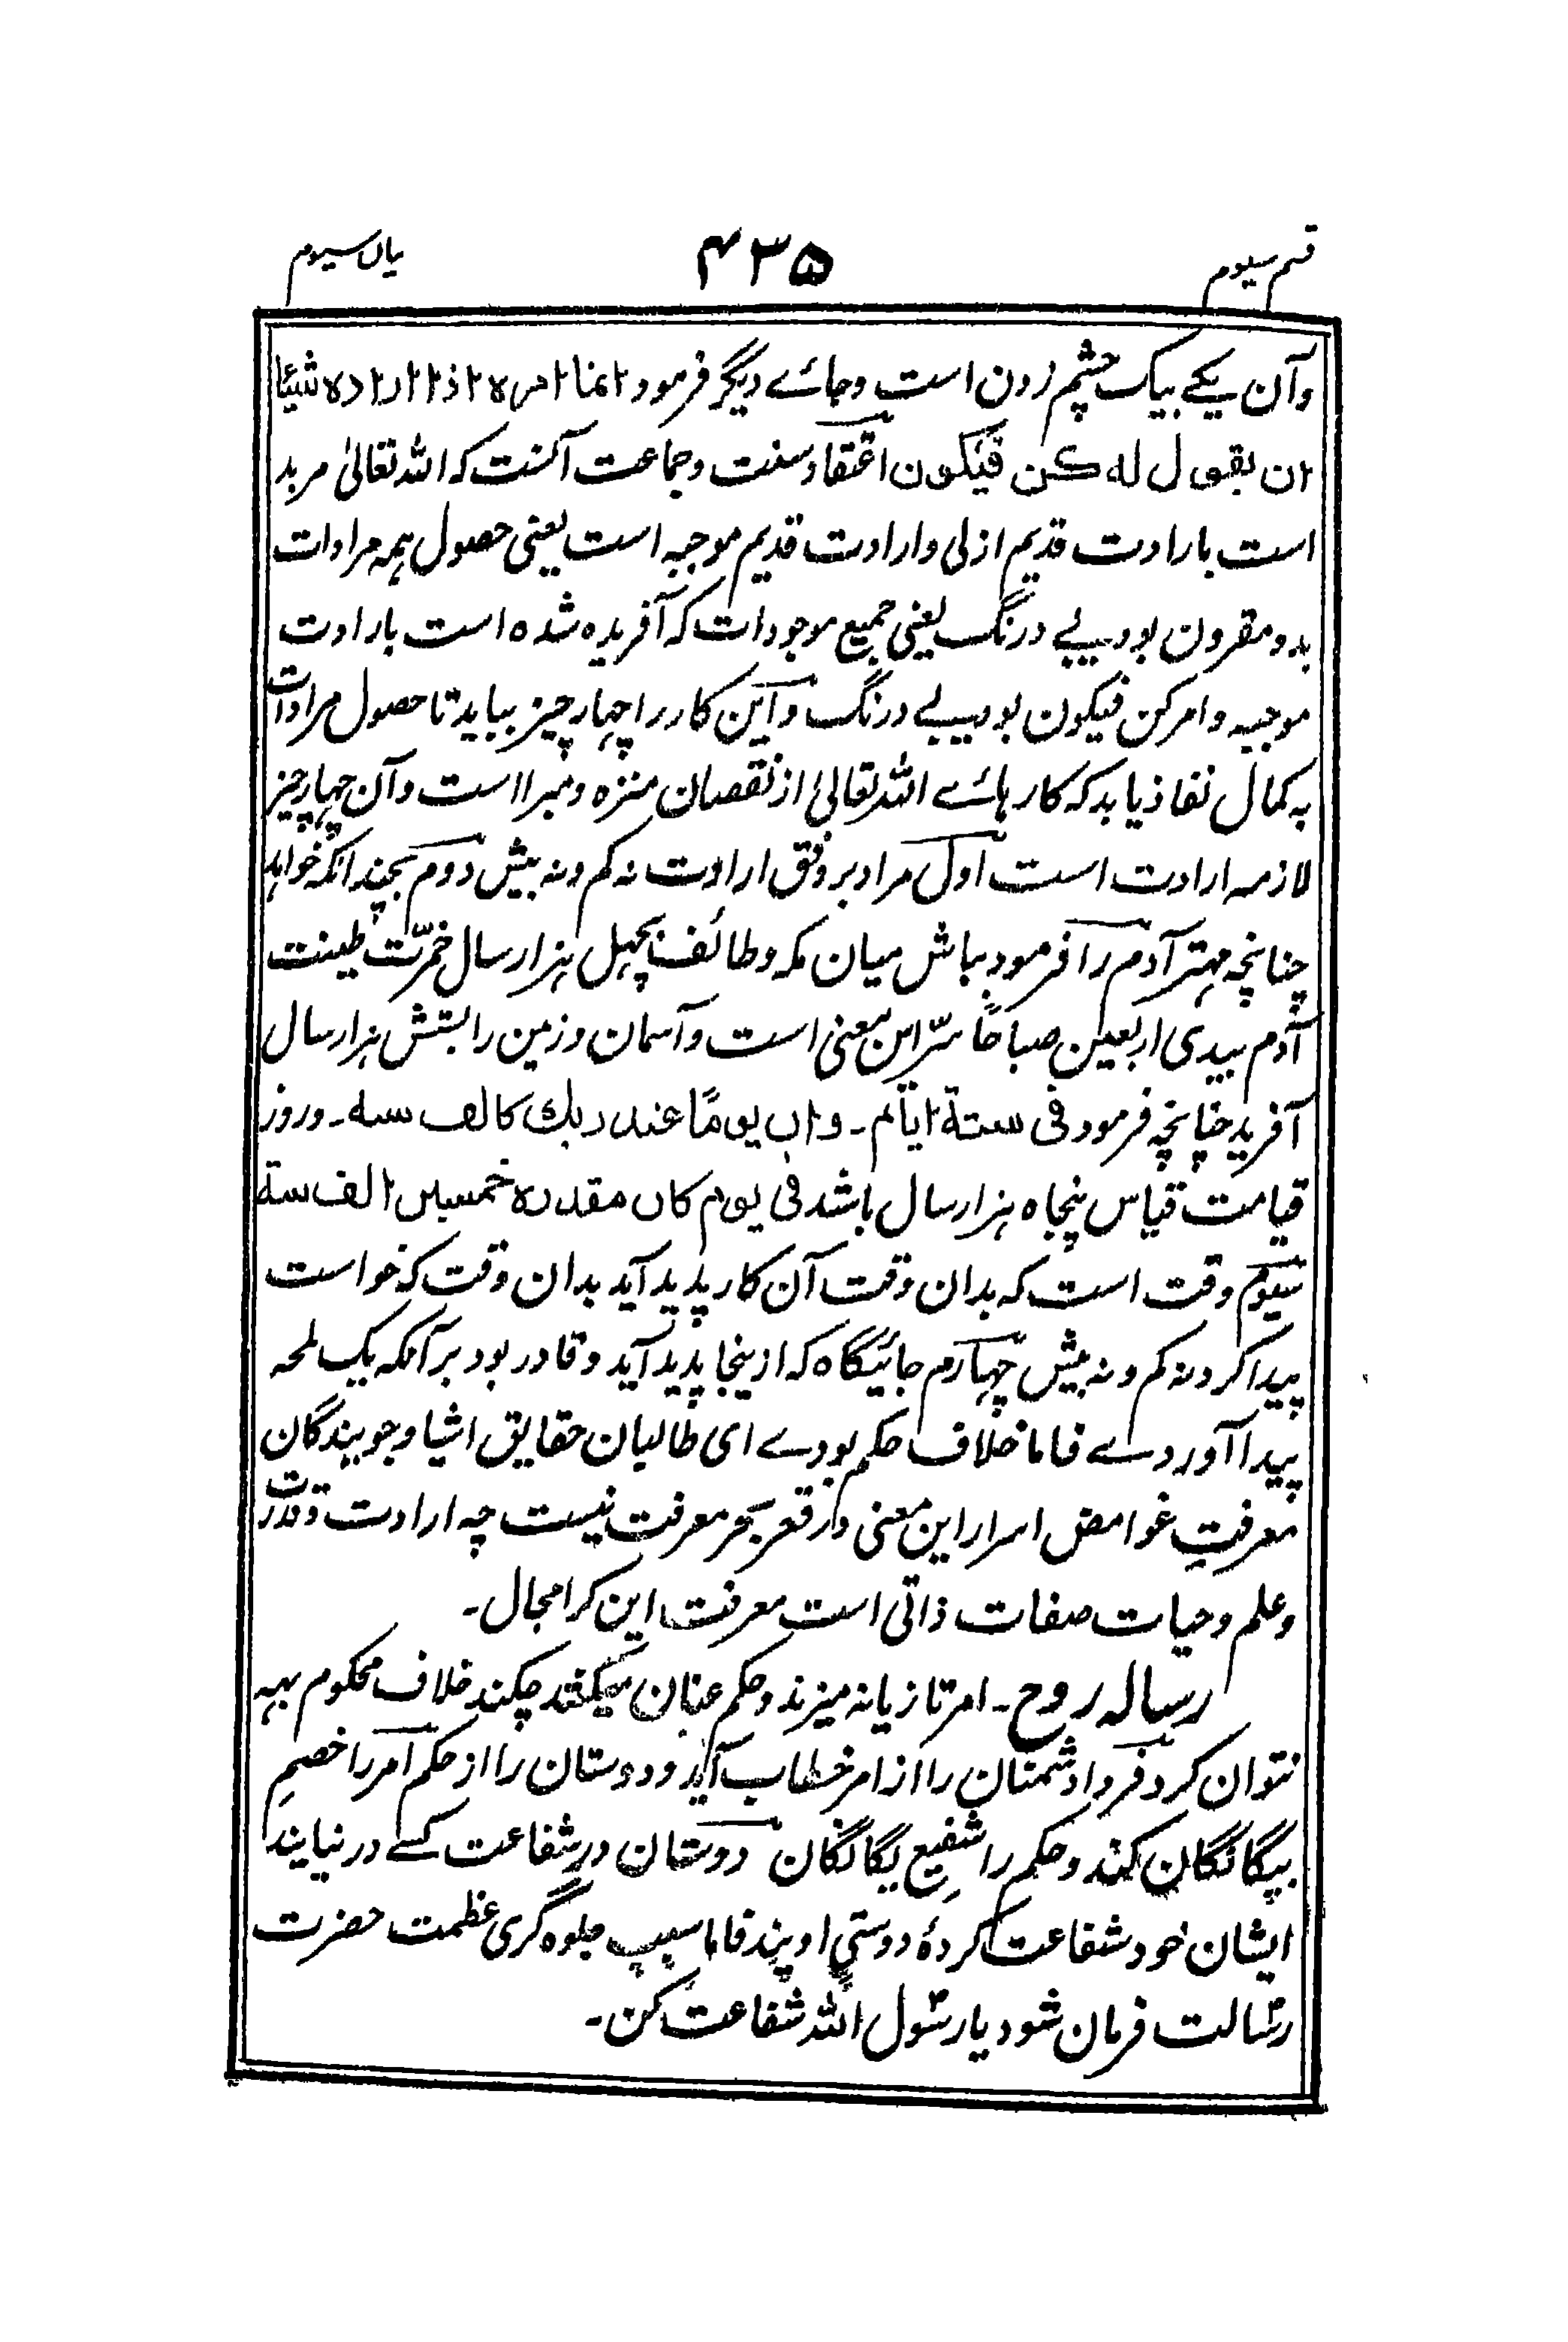 قسم سیوم
۴۳۵
بیان سیوم
وآن یکے بیک چشم زدن است وجائے دیگر فرمود انما امره اذا اراده شیئا
ان یقول له کن فیکون اعتقاد سنت وجماعت آنست که الله تعالیٰ مرید
است بارادت قدیم ازلی وارادت قدیم موجبه است یعنی حصول همه مرادات
بدو مقرون بود بے درنگ یعنی جمیع موجودات که آفریده شده است بارادت
موجبه وامر کن فیکون بود بے درنگ واین کار را چهار چیز بباید تا حصول مرادات
به کمال نفاذ یابد که کارهائے الله تعالیٰ از نقصان منزه ومبرا است وآن چهار چیز
لازمه ارادت است اول مراد بر وفق ارادت نه کم ونه بیش دوم بچندانکه خواهد
چنانچه مهتر آدم را فرمود بباش میان مکه وطائف بچهل هزار سال خمرت طینت
آدم بیدی اربعین صباحًا سرّ این معنی است وآسمان وزمین را بشش هزار سال
آفرید چنانچه فرمود فی ستة ایام۔ وان یومًا عند ربك كالف سنة۔ وروز
قیامت قیاس پنجاه هزار سال باشد فی یوم کان مقدره خمسین الف سنة
سیوم وقت است که بدان وقت آن کار پدید آید بدان وقت که خواست
پیدا کرد نه کم ونه بیش چهارم جائیگاه که ازینجا پدید آید وقادر بود بر آنکه بیک لمحه
پیدا آوردے فاما خلاف حکم بودے ای طالبان حقایق اشیا وجویندگان
معرفتِ غوامض اسرار این معنی در قعر بحر معرفت نیست چه ارادت وقدرت
وعلم وحیات صفات ذاتی است معرفت این کرا مجال۔
رساله روح۔ امر تازیانه میزند وحکم عنان میکشد چکند خلاف محکوم بهه
نتوان کرد فردا دشمنان را از امر خطاب آید ودوستان را از حکم امر را خصمِ
بیگانگان کند وحکم را شفیعِ یگانگان دوستان در شفاعت کسے در نیایند
ایشان خود شفاعت کردهٔ دوستیِ اویند فاما سبب جلوه گری عظمت حضرت
رسالت فرمان شود یا رسول الله شفاعت کن۔